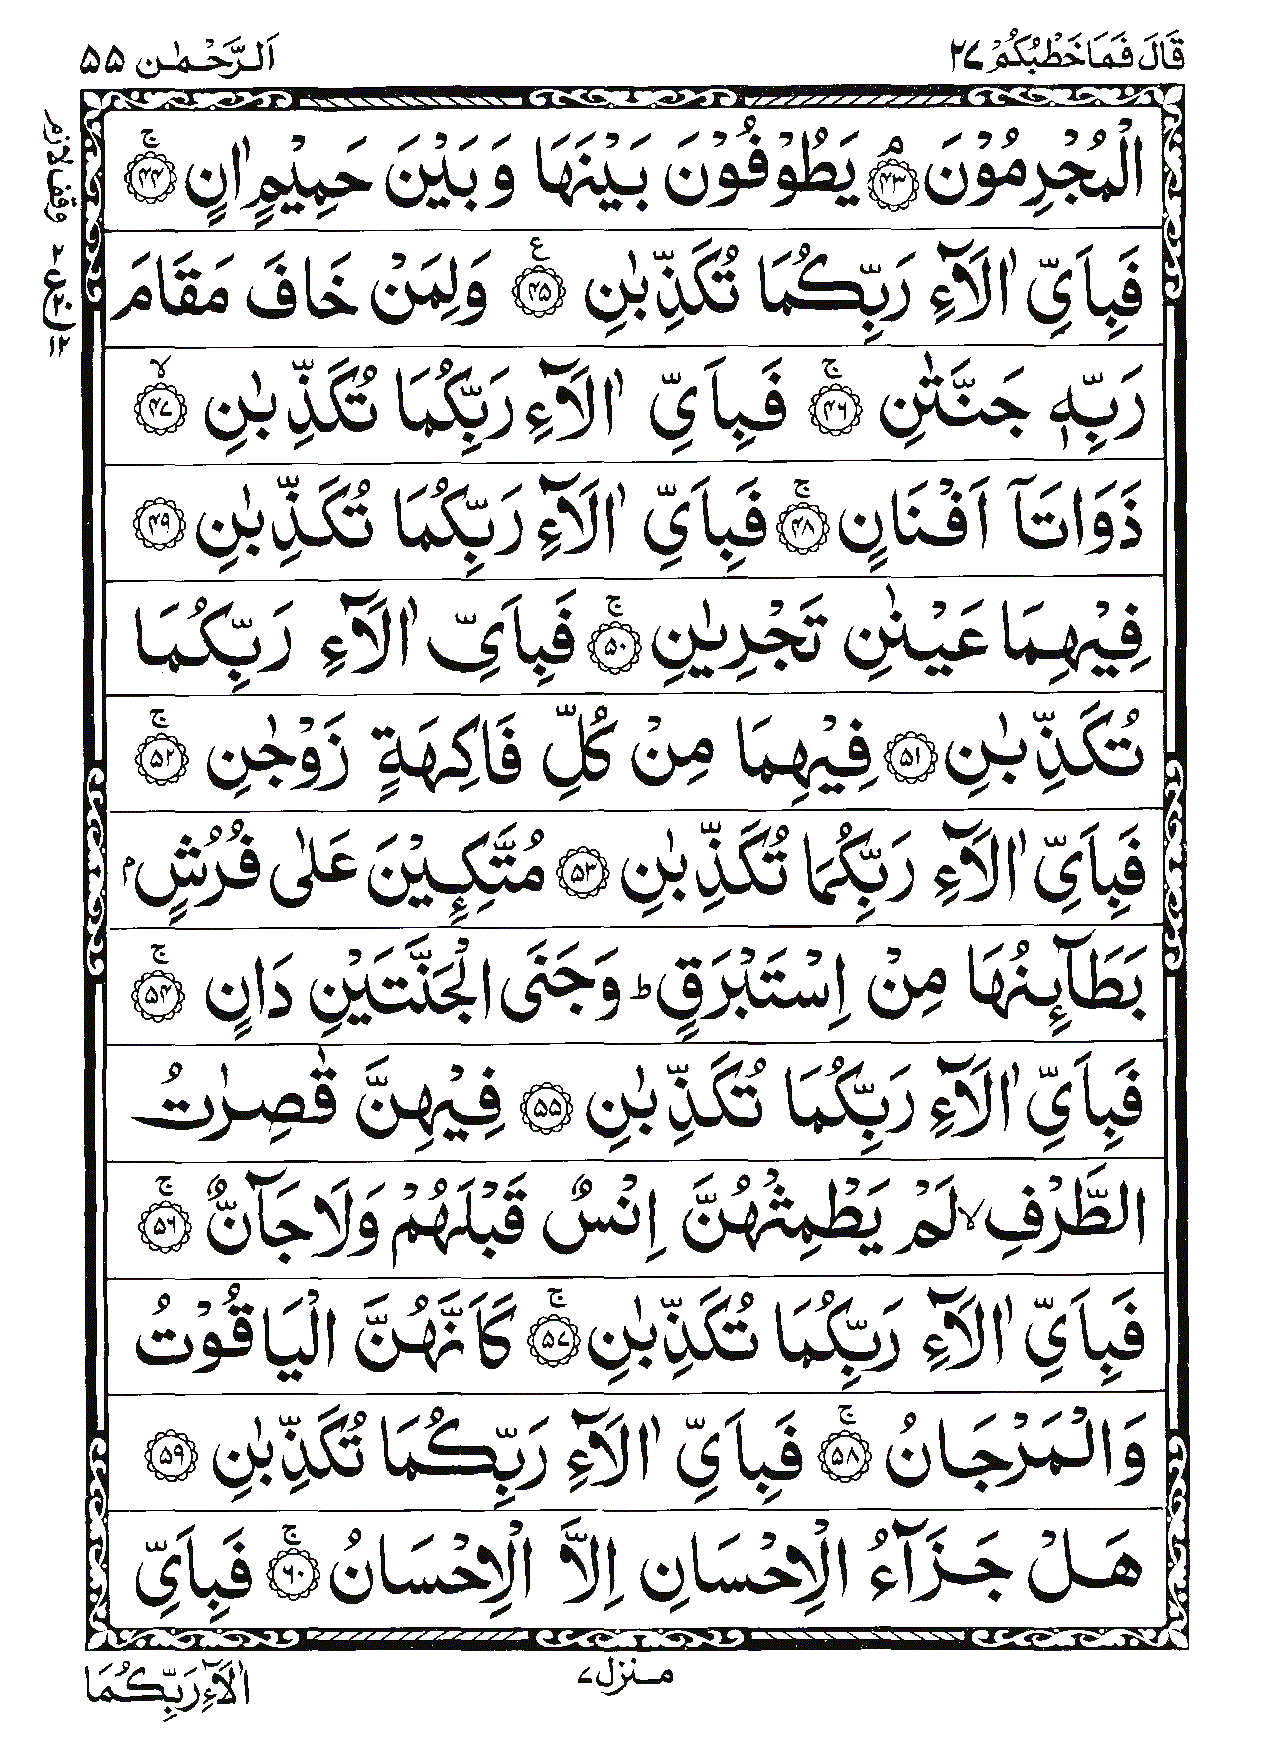 قَالَ فَمَا خَطْبُكُمْ ۲۷
اَلرَّحْمٰن ۵۵
وقف لازم
۲ ع ۱۲
الْمُجْرِمُوْنَ ۘ ﴿۴۳﴾ يَطُوْفُوْنَ بَيْنَهَا وَ بَيْنَ حَمِيْمٍ اٰنٍ ۚ ﴿۴۴﴾
فَبِاَيِّ اٰلَآءِ رَبِّكُمَا تُكَذِّبٰنِ ﴿۴۵﴾ ع وَلِمَنْ خَافَ مَقَامَ
رَبِّهٖ جَنَّتٰنِ ۚ ﴿۴۶﴾ فَبِاَيِّ اٰلَآءِ رَبِّكُمَا تُكَذِّبٰنِ ۙ ﴿۴۷﴾
ذَوَاتَآ اَفْنَانٍ ۚ ﴿۴۸﴾ فَبِاَيِّ اٰلَآءِ رَبِّكُمَا تُكَذِّبٰنِ ﴿۴۹﴾
فِيْهِمَا عَيْنٰنِ تَجْرِيٰنِ ۚ ﴿۵۰﴾ فَبِاَيِّ اٰلَآءِ رَبِّكُمَا
تُكَذِّبٰنِ ﴿۵۱﴾ فِيْهِمَا مِنْ كُلِّ فَاكِهَةٍ زَوْجٰنِ ۚ ﴿۵۲﴾
فَبِاَيِّ اٰلَآءِ رَبِّكُمَا تُكَذِّبٰنِ ﴿۵۳﴾ مُتَّكِـِٕيْنَ عَلٰى فُرُشٍۭ
بَطَآئِنُهَا مِنْ اِسْتَبْرَقٍ ؕ وَجَنَى الْجَنَّتَيْنِ دَانٍ ۚ ﴿۵۴﴾
فَبِاَيِّ اٰلَآءِ رَبِّكُمَا تُكَذِّبٰنِ ﴿۵۵﴾ فِيْهِنَّ قٰصِرٰتُ
الطَّرْفِ ۙ لَمْ يَطْمِثْهُنَّ اِنْسٌ قَبْلَهُمْ وَلَا جَآنٌّ ۚ ﴿۵۶﴾
فَبِاَيِّ اٰلَآءِ رَبِّكُمَا تُكَذِّبٰنِ ۚ ﴿۵۷﴾ كَاَنَّهُنَّ الْيَاقُوْتُ
وَالْمَرْجَانُ ۚ ﴿۵۸﴾ فَبِاَيِّ اٰلَآءِ رَبِّكُمَا تُكَذِّبٰنِ ﴿۵۹﴾
هَلْ جَزَآءُ الْاِحْسَانِ اِلَّا الْاِحْسَانُ ۚ ﴿۶۰﴾ فَبِاَيِّ
منزل ۷
اٰلَآءِ رَبِّكُمَا